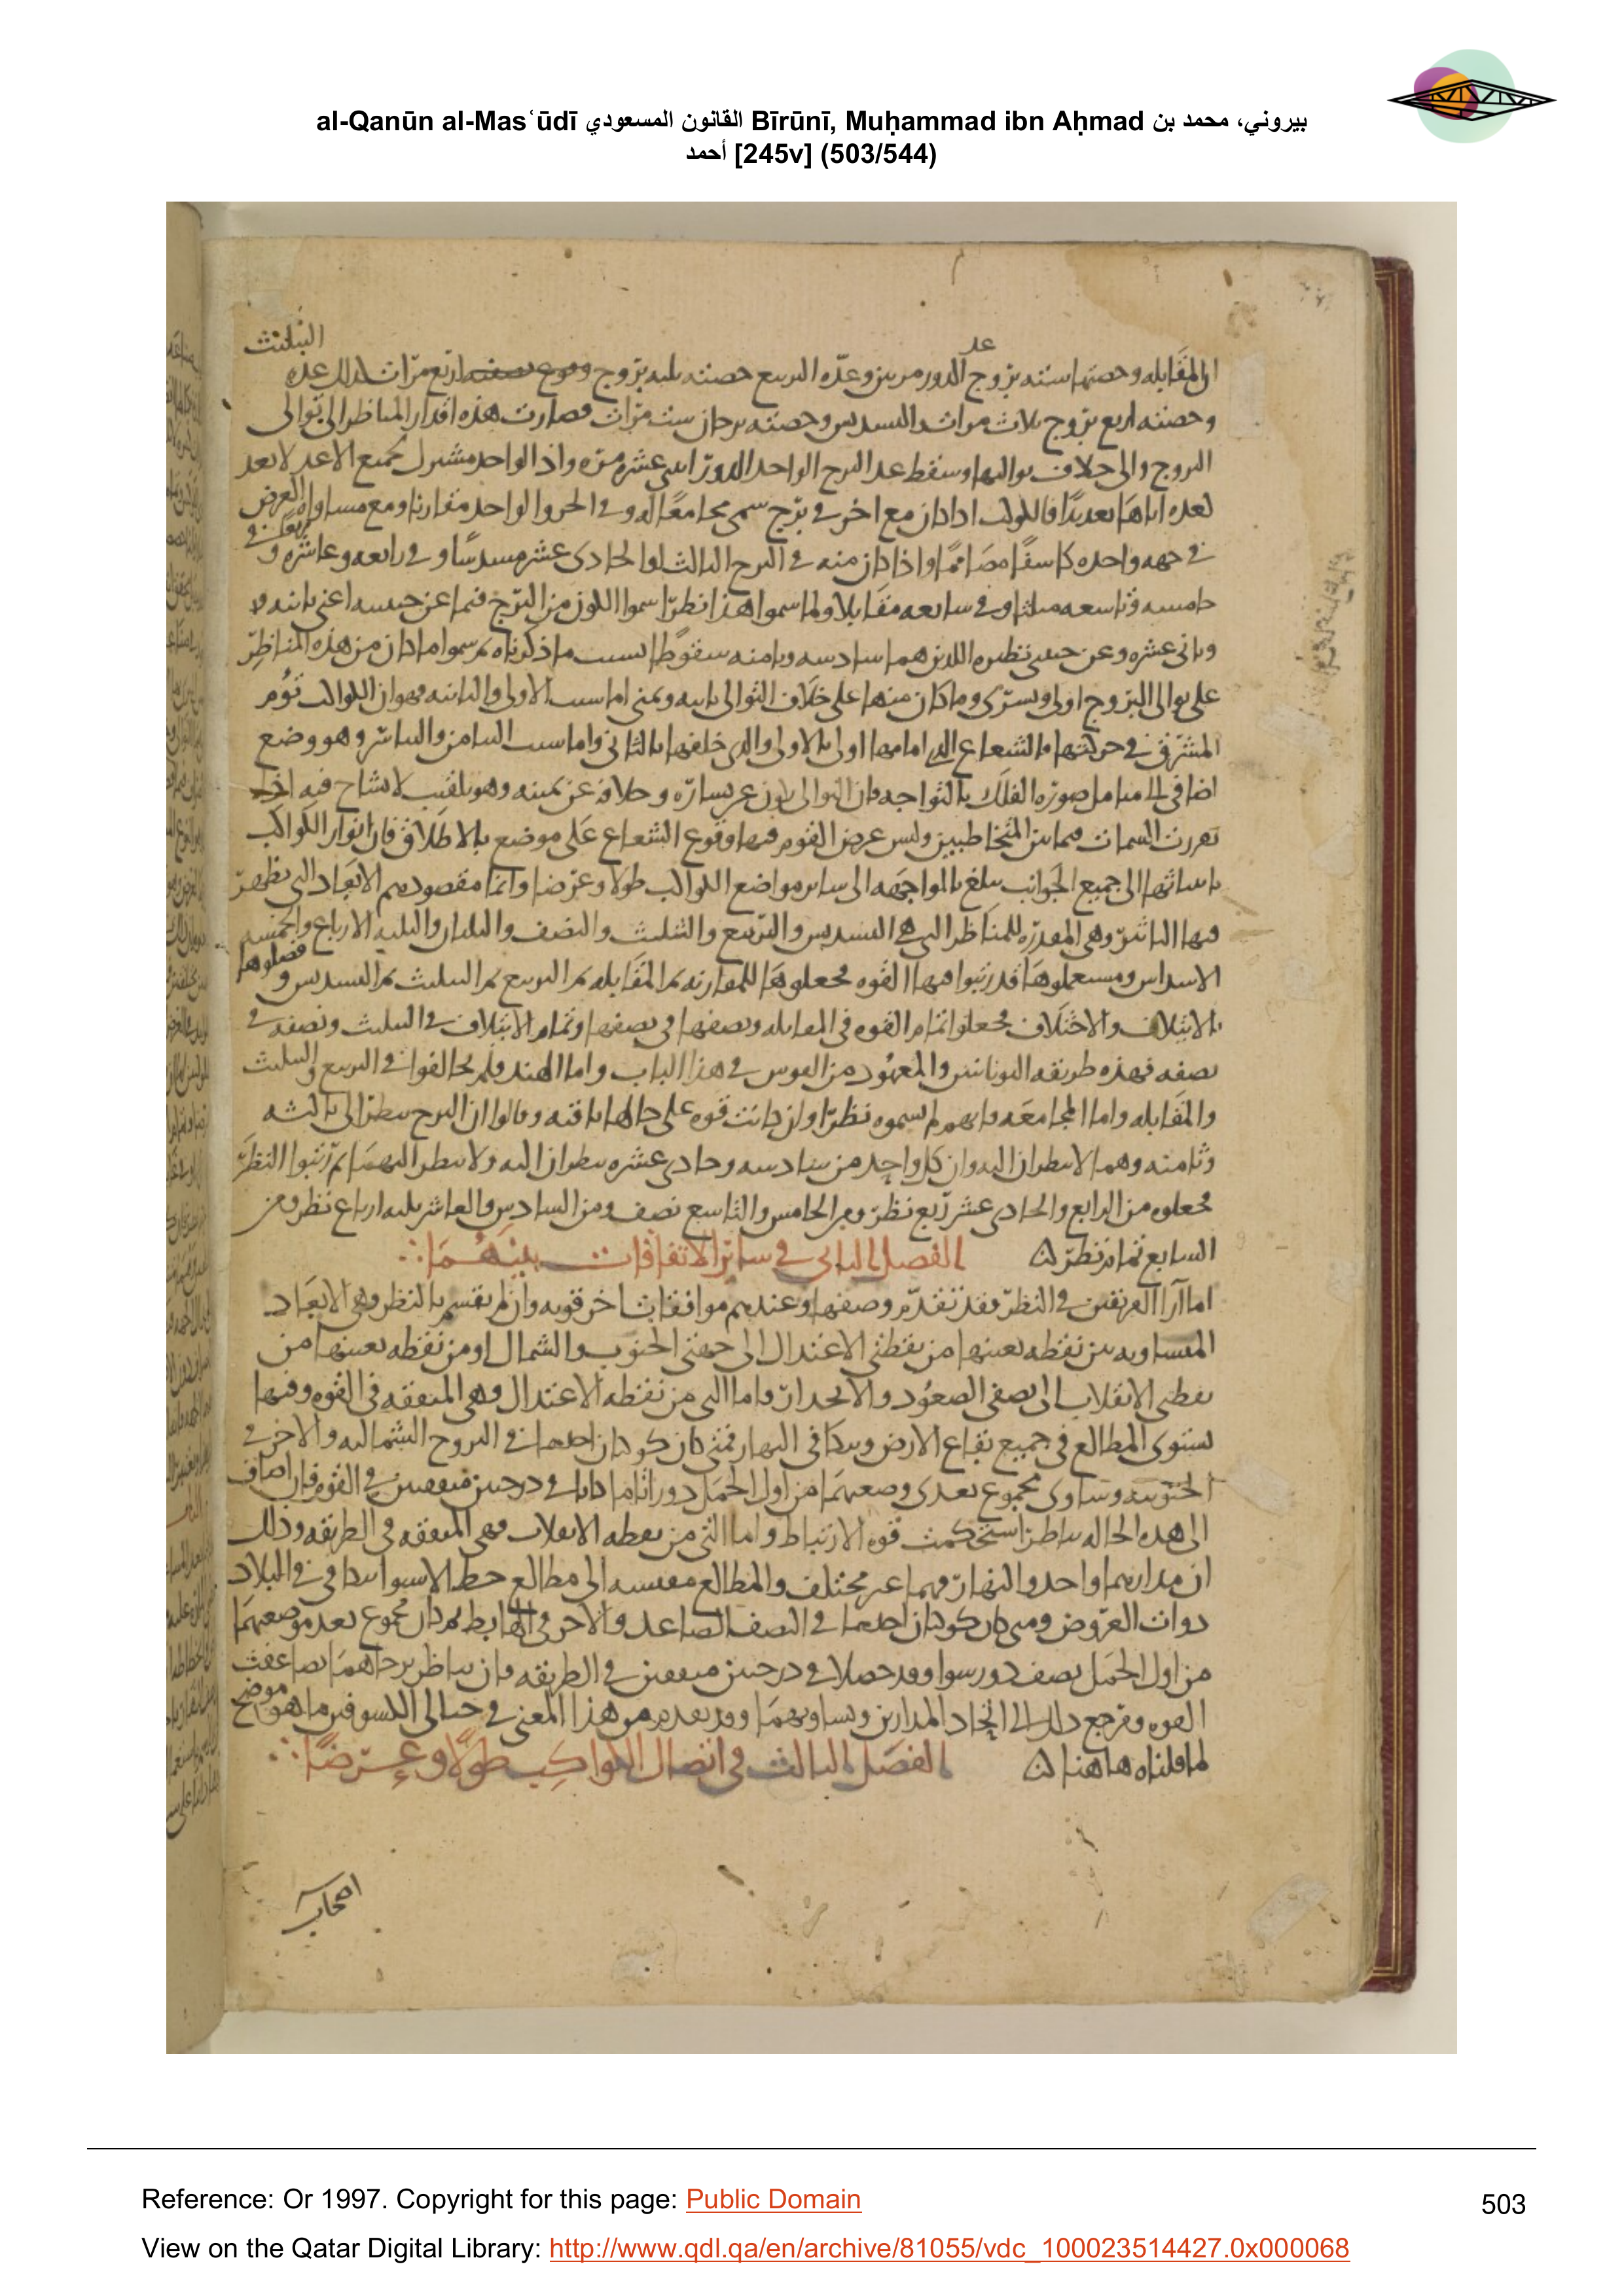 al-Qanūn al-Masʿūdī القانون المسعودي Bīrūnī, Muḥammad ibn Aḥmad بيروني، محمد بن
أحمد [245v] (503/544)
التثليث
عد
او المقابله وحصتها سته بروج الدور مرتين وعده التربيع حصته ثلثه بروج اربع مرات عده
وحصته اربع بروج ثلاث مرات والتسديس وحصته برجان ست مرات فصارت هذه اقدار المناظر الى توالى
البروج والى خلاف تواليها وسقط عد البرج الواحد الدور اثنى عشره مره واذ الواحد مشترك لجميع الاعداد لا يعد
فالكوكب اذا كان مع اخر فى برج سمى مجامعا له وفى الجزو الواحد مقارنا ومع مساواه العرض
فى جهه واحده كاسفا واذا كان منه فى البرج الثالث او الحادى عشر مسدسا وفى رابعه وعاشره مربعا وفى
خامسه وتاسعه مثلثا وفى سابعه مقابلا ولما سموا هذا نظرا سموا الكون من البرج فيما عن جنبيه اعنى ثانيه
وثانى عشره وعن جنبتى نظيره اللذين هما سادسه وثامنه سقوطا لسبب ما ذكرناه ثم سموا ما كان من هذه المناظر
على توالى البروج اولى ويسرى وما كان منها على خلاف التوالى ثانيه ويمنى اما سبب الاولى والثانيه فهو ان الكواكب تؤم
المشرق فى حركتها فالشعاع الذى امامها اولى بالاولى والذى خلفها بالثانى واما سبب التيامن والتياسر وهو وضع
اضافى الى متامل صوره الفلك بالتواجه فان التوالى يكون عن يساره وخلافه عن يمينه وهو تلقيب لا يشاح فيه اذا
تقررت السمات فيما بين المتخاطبين وليس غرض القوم فيها وقوع الشعاع على موضع بالاطلاق فان انوار الكواكب
الى جميع الجوانب تبلغ بالمواجهه الى سائر مواضع الكواكب طولا وعرضا وانما مقصودهم الابعاد التى يظهر
فيها التاثير وهى المقدره للمناظر التى هى التسديس والتربيع والتثليث والنصف والثلثان والثلثه الارباع والخمسه
الاسداس ومستعملوها قد رتبوا فيها القوه فجعلوها للمقارنه ثم المقابله ثم التربيع ثم التثليث ثم التسديس وفصلوها
بالايتلاف والاختلاف فجعلوا تمام القوه فى المقابله ونصفها فى نصفها وتمام الايتلاف فى التثليث ونصفه فى
نصفه فهذه طريقه اليونانيين والمعهود من الفرس فى هذا الباب واما الهند فلم يخالفوا فى التربيع والتثليث
والمقابله واما المجامعه فانهم لم يسموه نظرا وان كانت قوه على حالها باقيه وقالوا ان البرج ينظر الى ثالثه
وثامنه وهما لا ينظران اليه وان كل واحد من سادسه وحادى عشره ينظران اليه ولا ينظر اليهما ثم رتبوا النظر
فجعلوه من الرابع والحادى عشر ربع نظر ومن الخامس والتاسع نصف ومن السادس والعاشر ثلثه ارباع نظر ومن
السابع تمام نظر ن الفصل الثانى فى سائر الاتفاقات بينهما
اما آرا الفريقين فى النظر فقد تقدم وصفها وعندهم موافقات اخر قويه وان لم تقسم بالنظر وهى الابعاد
المتساويه من نقطه بعينها من نقطتى الاعتدال الى جهتى الجنوب والشمال او من نقطه بعينها من
نقطتى الانقلاب الى نصفى الصعود والانحدار واما التى من نقطه الاعتدال وهى المتفقه فى القوه وفيها
تستوى المطالع فى جميع بقاع الارض ويتكافى النهار فمتى كان كوكبان احدهما فى البروج الشماليه والاخر فى
الجنوبيه وساوى مجموع بعدى وضعيهما من اول الحمل دورا تاما كانا فى درجتين متفقتين فى القوه فان اضاف
الى هذه الحاله تناظر استحكمت قوه الارتباط واما التى من نقطه الانقلاب فهى المتفقه فى الطريقه وذلك
ان مداريهما واحد والنهار فيهما غير مختلف والمطالع مقيسه الى مطالع خط الاستوا تتكافى فى البلاد
ذوات العروض ومتى كان كوكبان احدهما فى النصف الصاعد والاخر فى الهابط ثم كان مجموع بعد موضعيهما
من اول الحمل نصف دور سوا وقد حصلا فى درجتين متفقتين فى الطريقه فان تناظر برجاهما تضاعفت
القوه ومرجع ذلك الى اتحاد المدارين وتساويهما وقد تقدم من هذا المعنى فى حسابى الكسوفين ما هو موضح
لما قلناه هاهنا ن الفصل الثالث فى اتصال الكواكب طولا وعرضا
اصحاب
Reference: Or 1997. Copyright for this page: Public Domain
503
View on the Qatar Digital Library: http://www.qdl.qa/en/archive/81055/vdc_100023514427.0x000068